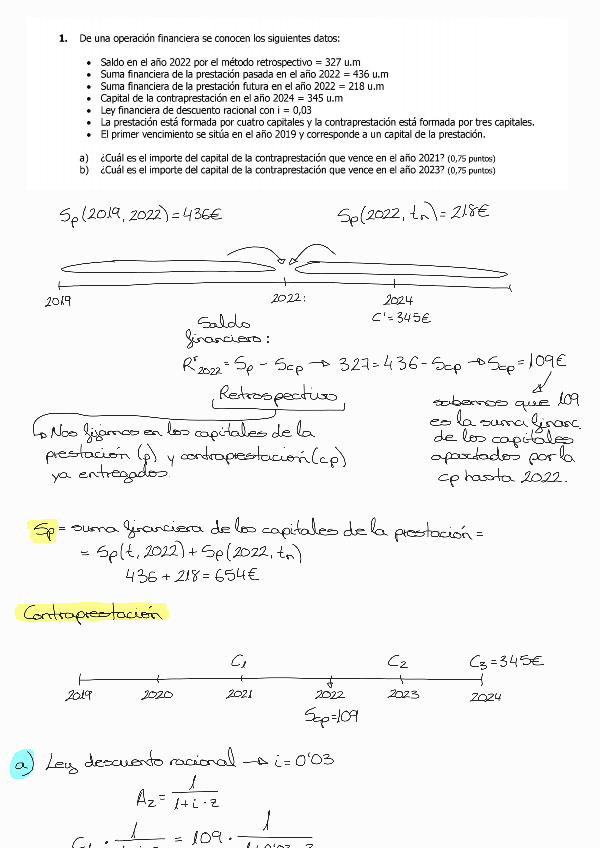 1. De una operación financiera se conocen los siguientes datos:
• Saldo en el año 2022 por el método retrospectivo = 327 u.m
• Suma financiera de la prestación pasada en el año 2022 = 436 u.m
• Suma financiera de la prestación futura en el año 2022 = 218 u.m
• Capital de la contraprestación en el año 2024 = 345 u.m
• Ley financiera de descuento racional con i = 0,03
• La prestación está formada por cuatro capitales y la contraprestación está formada por tres capitales.
• El primer vencimiento se sitúa en el año 2019 y corresponde a un capital de la prestación.
a) ¿Cuál es el importe del capital de la contraprestación que vence en el año 2021? (0,75 puntos)
b) ¿Cuál es el importe del capital de la contraprestación que vence en el año 2023? (0,75 puntos)
Sp(2019, 2022) = 436€ Sp(2022, tn) = 218€
2019 2022: 2024
C' = 345€
Saldo
financiero:
Rr2022 = Sp - Scp → 327 = 436 - Scp → Scp = 109€
Retrospectivo
↳ Nos fijamos en los capitales de la
prestación (p) y contraprestación (cp)
ya entregados.
sabemos que 109
es la suma financ.
de los capitales
aportados por la
cp hasta 2022.
Sp = suma financiera de los capitales de la prestación =
= Sp(t, 2022) + Sp(2022, tn)
436 + 218 = 654€
Contraprestación
C1 C2 C3 = 345€
2019 2020 2021 2022 2023 2024
Scp = 109
a) Ley descuento racional → i = 0'03
Az = 1 / 1 + i · z
C1 · 1 = 109 · 1